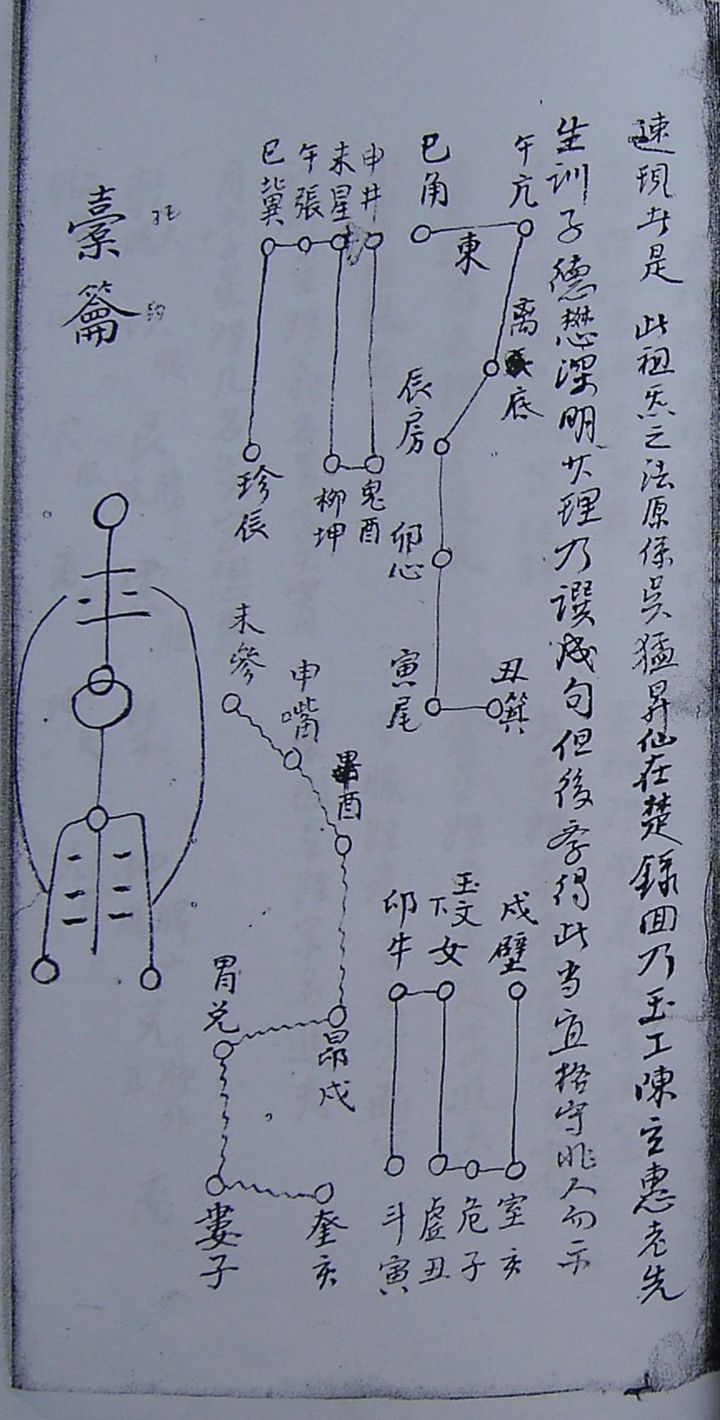 速現者是 此祖炁之法原係吳猛昇仙在楚錄回乃玉工陳立惠老先
生訓子德懋深明大理乃譔成句但後孝得此当宜格守非人勿示
午亢
巳角
東
离
底
辰房
卯心
寅尾
丑箕
申井
未星
午張
巳翼
鬼酉
柳坤
珍辰
戌壁
玉文
下女
卯牛
室亥
危子
虛丑
斗寅
畢酉
申嘴
未參
昴戌
胃兑
奎亥
婁子
橐
籥